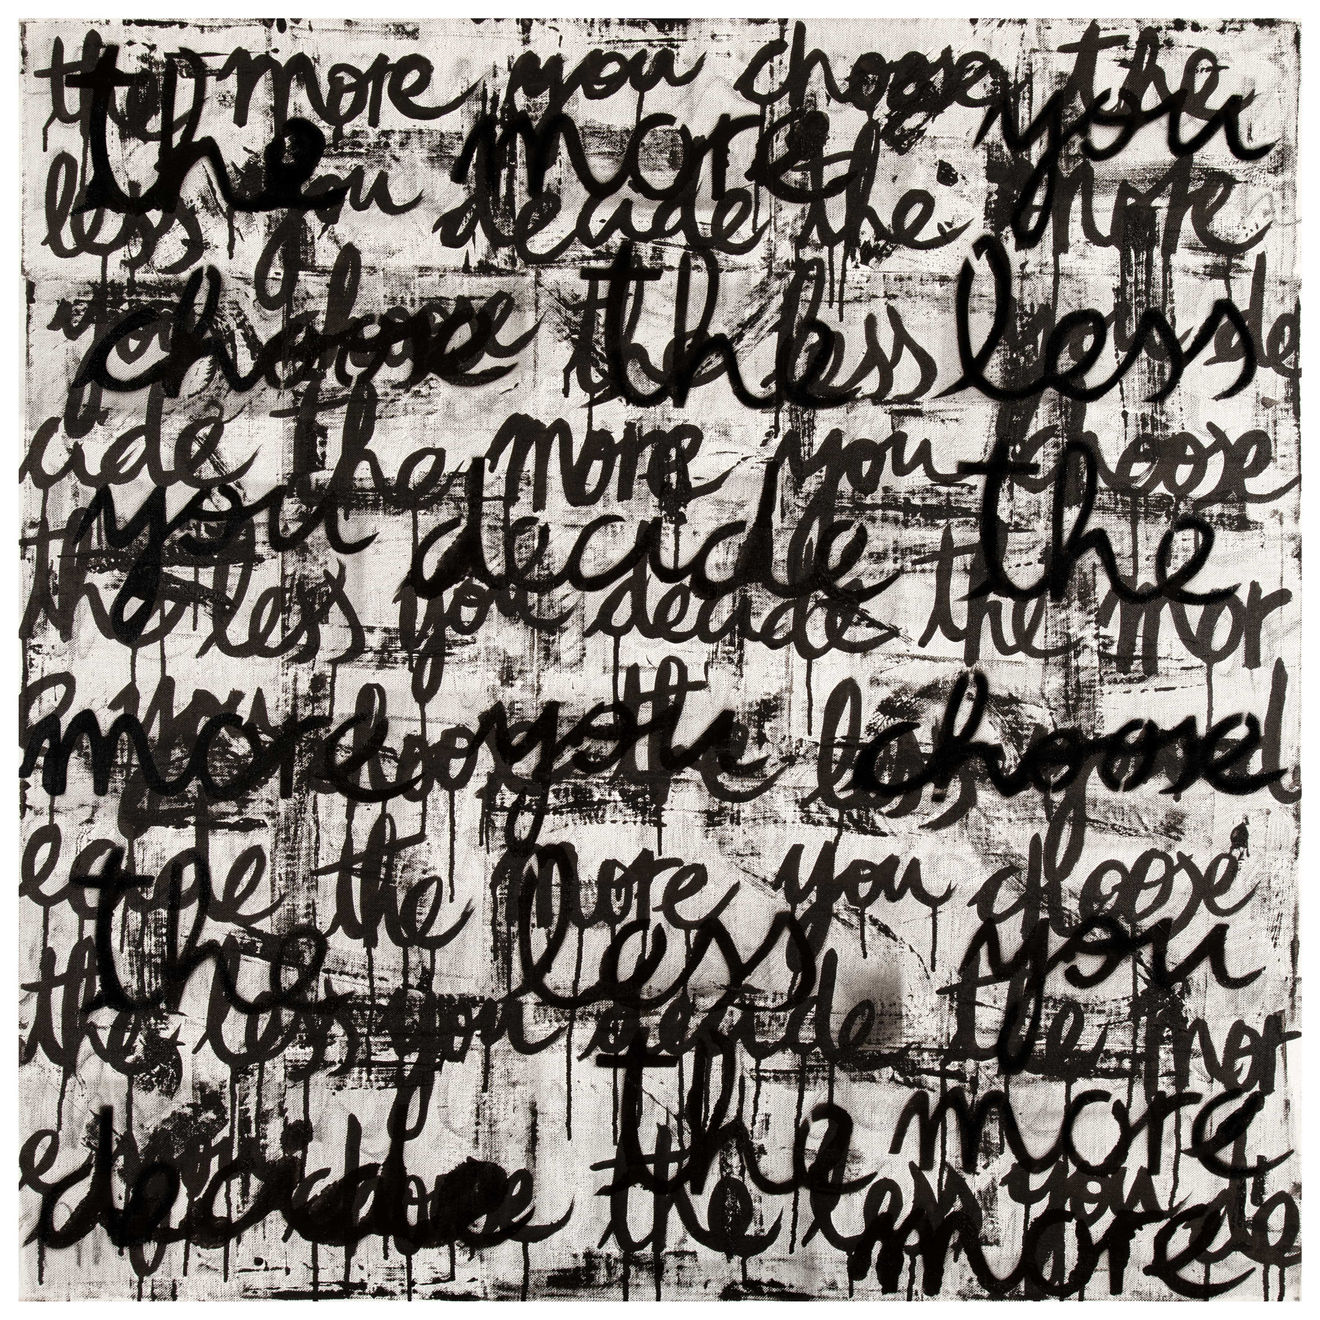 the more you choose the
the more you
less you decide the more
choose the less
you choose the less you de
cide the more you choose
you decide the
the less you decide the mor
more you choose
e you choose the less you d
ecide the more you choose
the less you
the less you decide the mor
decide the more
e you choose the less you de
more